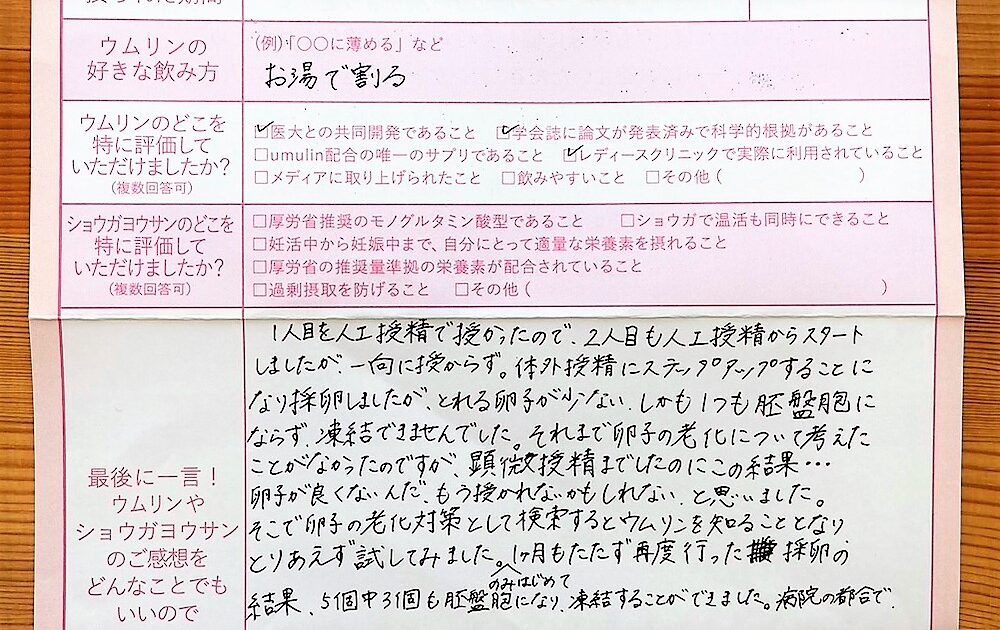 ウムリンの
好きな飲み方
(例)「〇〇に薄める」など
お湯で割る
ウムリンのどこを
特に評価して
いただけましたか?
(複数回答可)
☑医大との共同開発であること ☑学会誌に論文が発表済みで科学的根拠があること
□umulin配合の唯一のサプリであること ☑レディースクリニックで実際に利用されていること
□メディアに取り上げられたこと □飲みやすいこと □その他( )
ショウガヨウサンのどこを
特に評価して
いただけましたか?
(複数回答可)
□厚労省推奨のモノグルタミン酸型であること □ショウガで温活も同時にできること
□妊活中から妊娠中まで、自分にとって適量な栄養素を摂れること
□厚労省の推奨量準拠の栄養素が配合されていること
□過剰摂取を防げること □その他( )
最後に一言!
ウムリンや
ショウガヨウサン
のご感想を
どんなことでも
いいので
1人目を人工授精で授かったので、2人目も人工授精からスタート
しましたが、一向に授からず。体外授精にステップアップすることに
なり採卵しましたが、とれる卵子が少ない、しかも1つも胚盤胞に
ならず、凍結できませんでした。それまで卵子の老化について考えた
ことがなかったのですが、顕微授精までしたのにこの結果…
卵子が良くないんだ、もう授かれないかもしれない、と思いました。
そこで卵子の老化対策として検索するとウムリンを知ることとなり
とりあえず試してみました。1ヶ月もたたず再度行った 採卵の
のみはじめて
結果、5個中3個も胚盤胞になり、凍結することができました。病院の都合で、